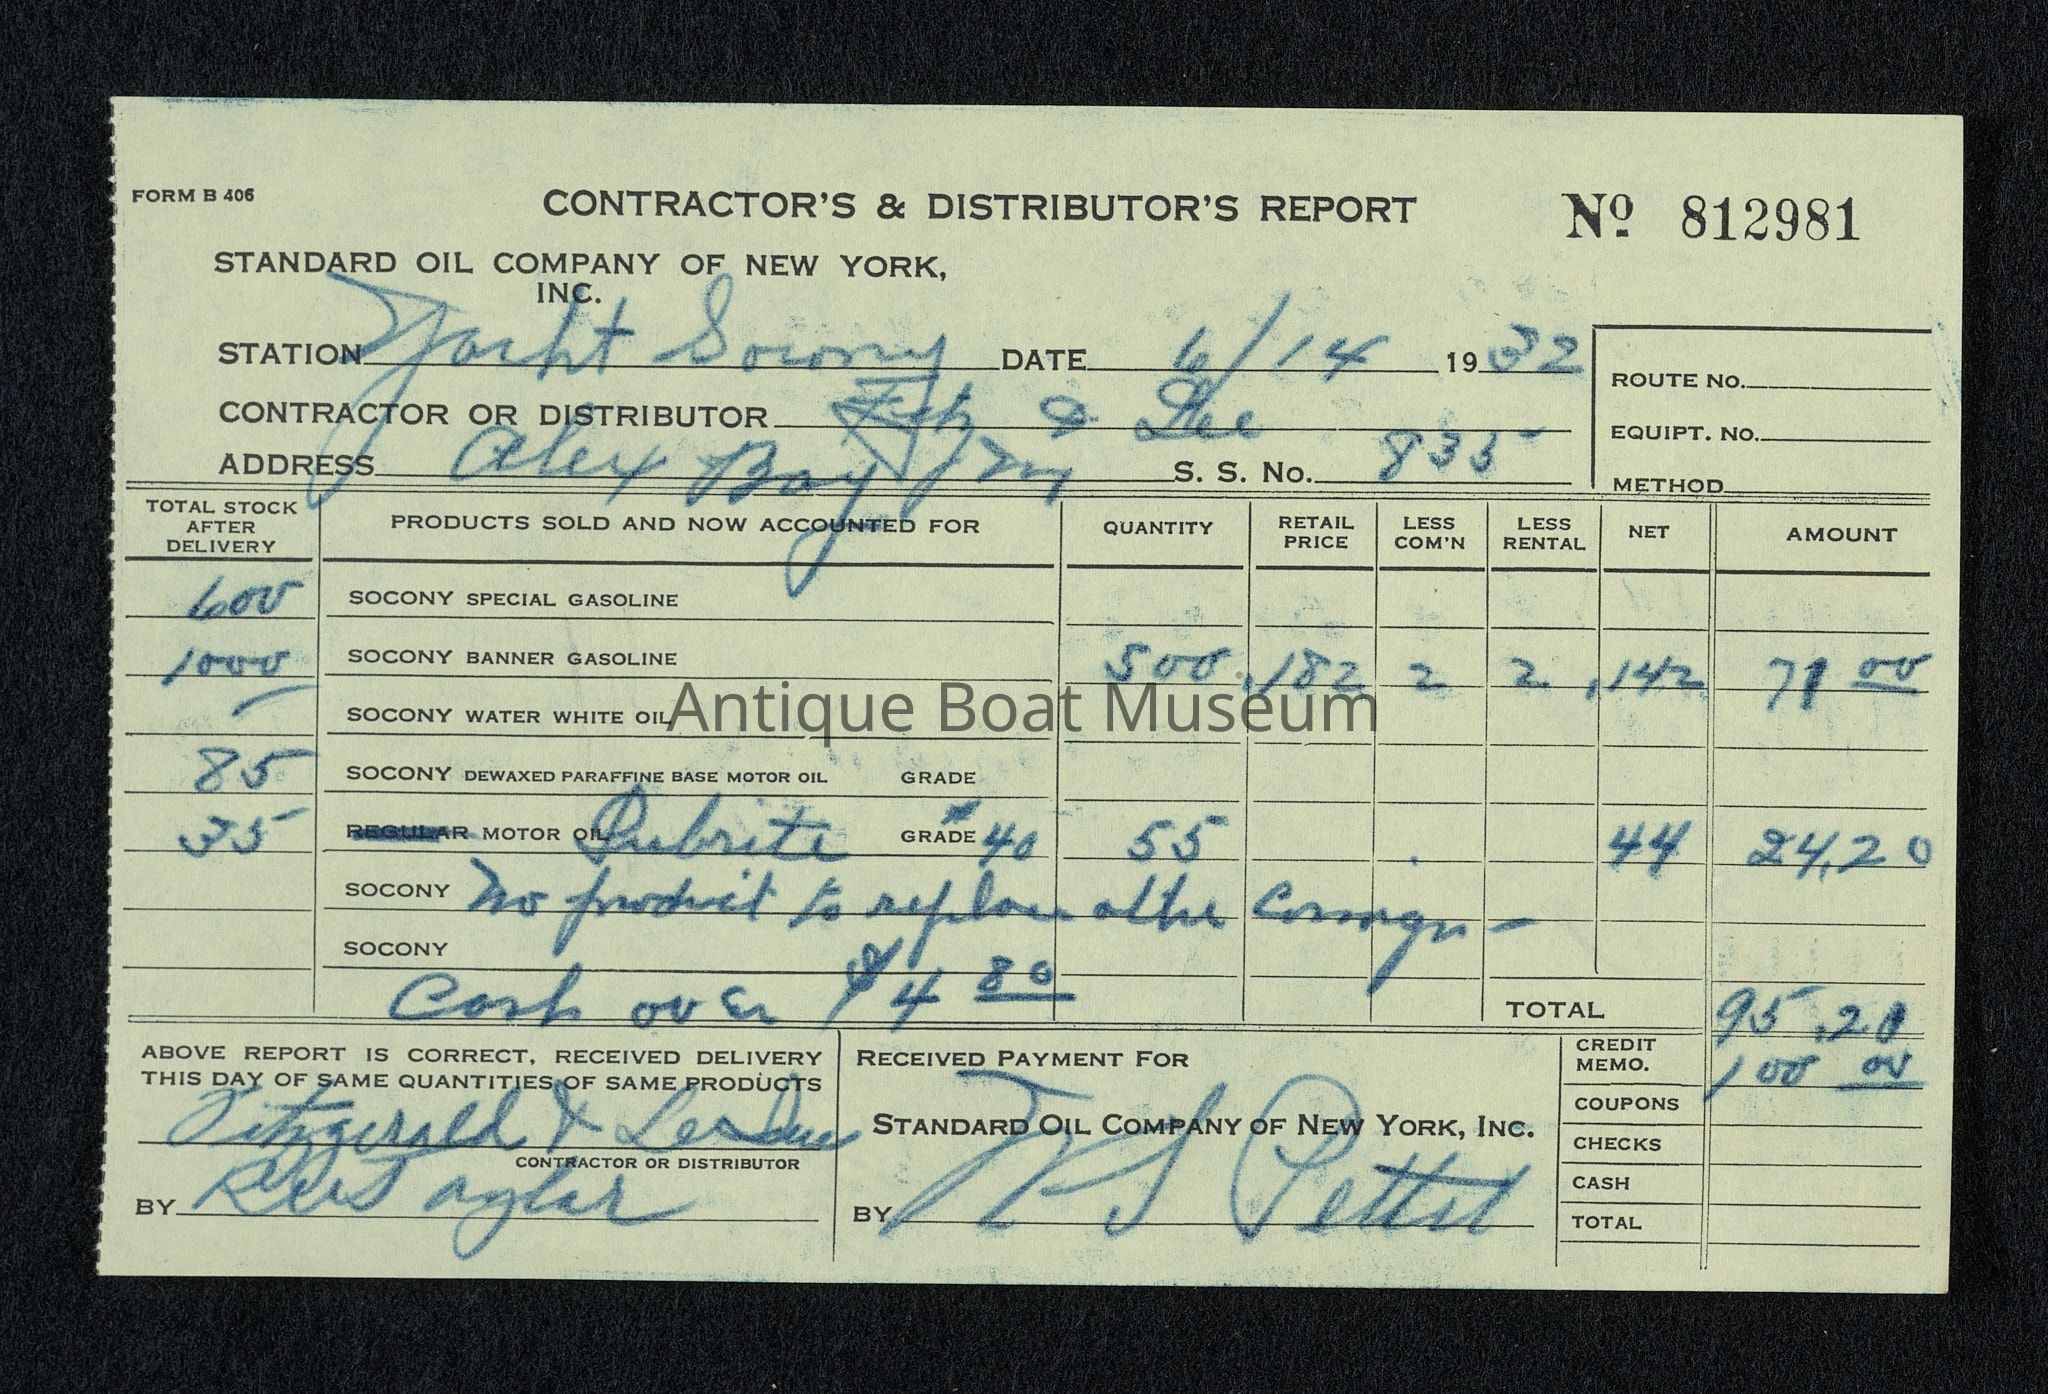 FORM B 406
CONTRACTOR'S & DISTRIBUTOR'S REPORT
No 812981
STANDARD OIL COMPANY OF NEW YORK,
INC.
STATION Yacht Socony DATE 6/14 1932
ROUTE No.
CONTRACTOR OR DISTRIBUTOR Fitz & Lee
EQUIPT. No.
ADDRESS Alex Bay, NY S. S. No. 835
METHOD
TOTAL STOCK AFTER DELIVERY PRODUCTS SOLD AND NOW ACCOUNTED FOR QUANTITY RETAIL PRICE LESS COM'N LESS RENTAL NET AMOUNT
600 SOCONY SPECIAL GASOLINE
1000 SOCONY BANNER GASOLINE 500 .182 2 2 .142 71 00
SOCONY WATER WHITE OIL
Antique Boat Museum
85 SOCONY DEWAXED PARAFFINE BASE MOTOR OIL GRADE
35 REGULAR MOTOR OIL Lubrite GRADE #40 55 44 24.20
SOCONY No product to replace other
SOCONY
Cash over $4 80
TOTAL 95.20
ABOVE REPORT IS CORRECT, RECEIVED DELIVERY
THIS DAY OF SAME QUANTITIES OF SAME PRODUCTS
Fitzgerald & Lee
CONTRACTOR OR DISTRIBUTOR
BY Taylor
RECEIVED PAYMENT FOR
STANDARD OIL COMPANY OF NEW YORK, INC.
BY Pettit
CREDIT MEMO. 100 00
COUPONS
CHECKS
CASH
TOTAL